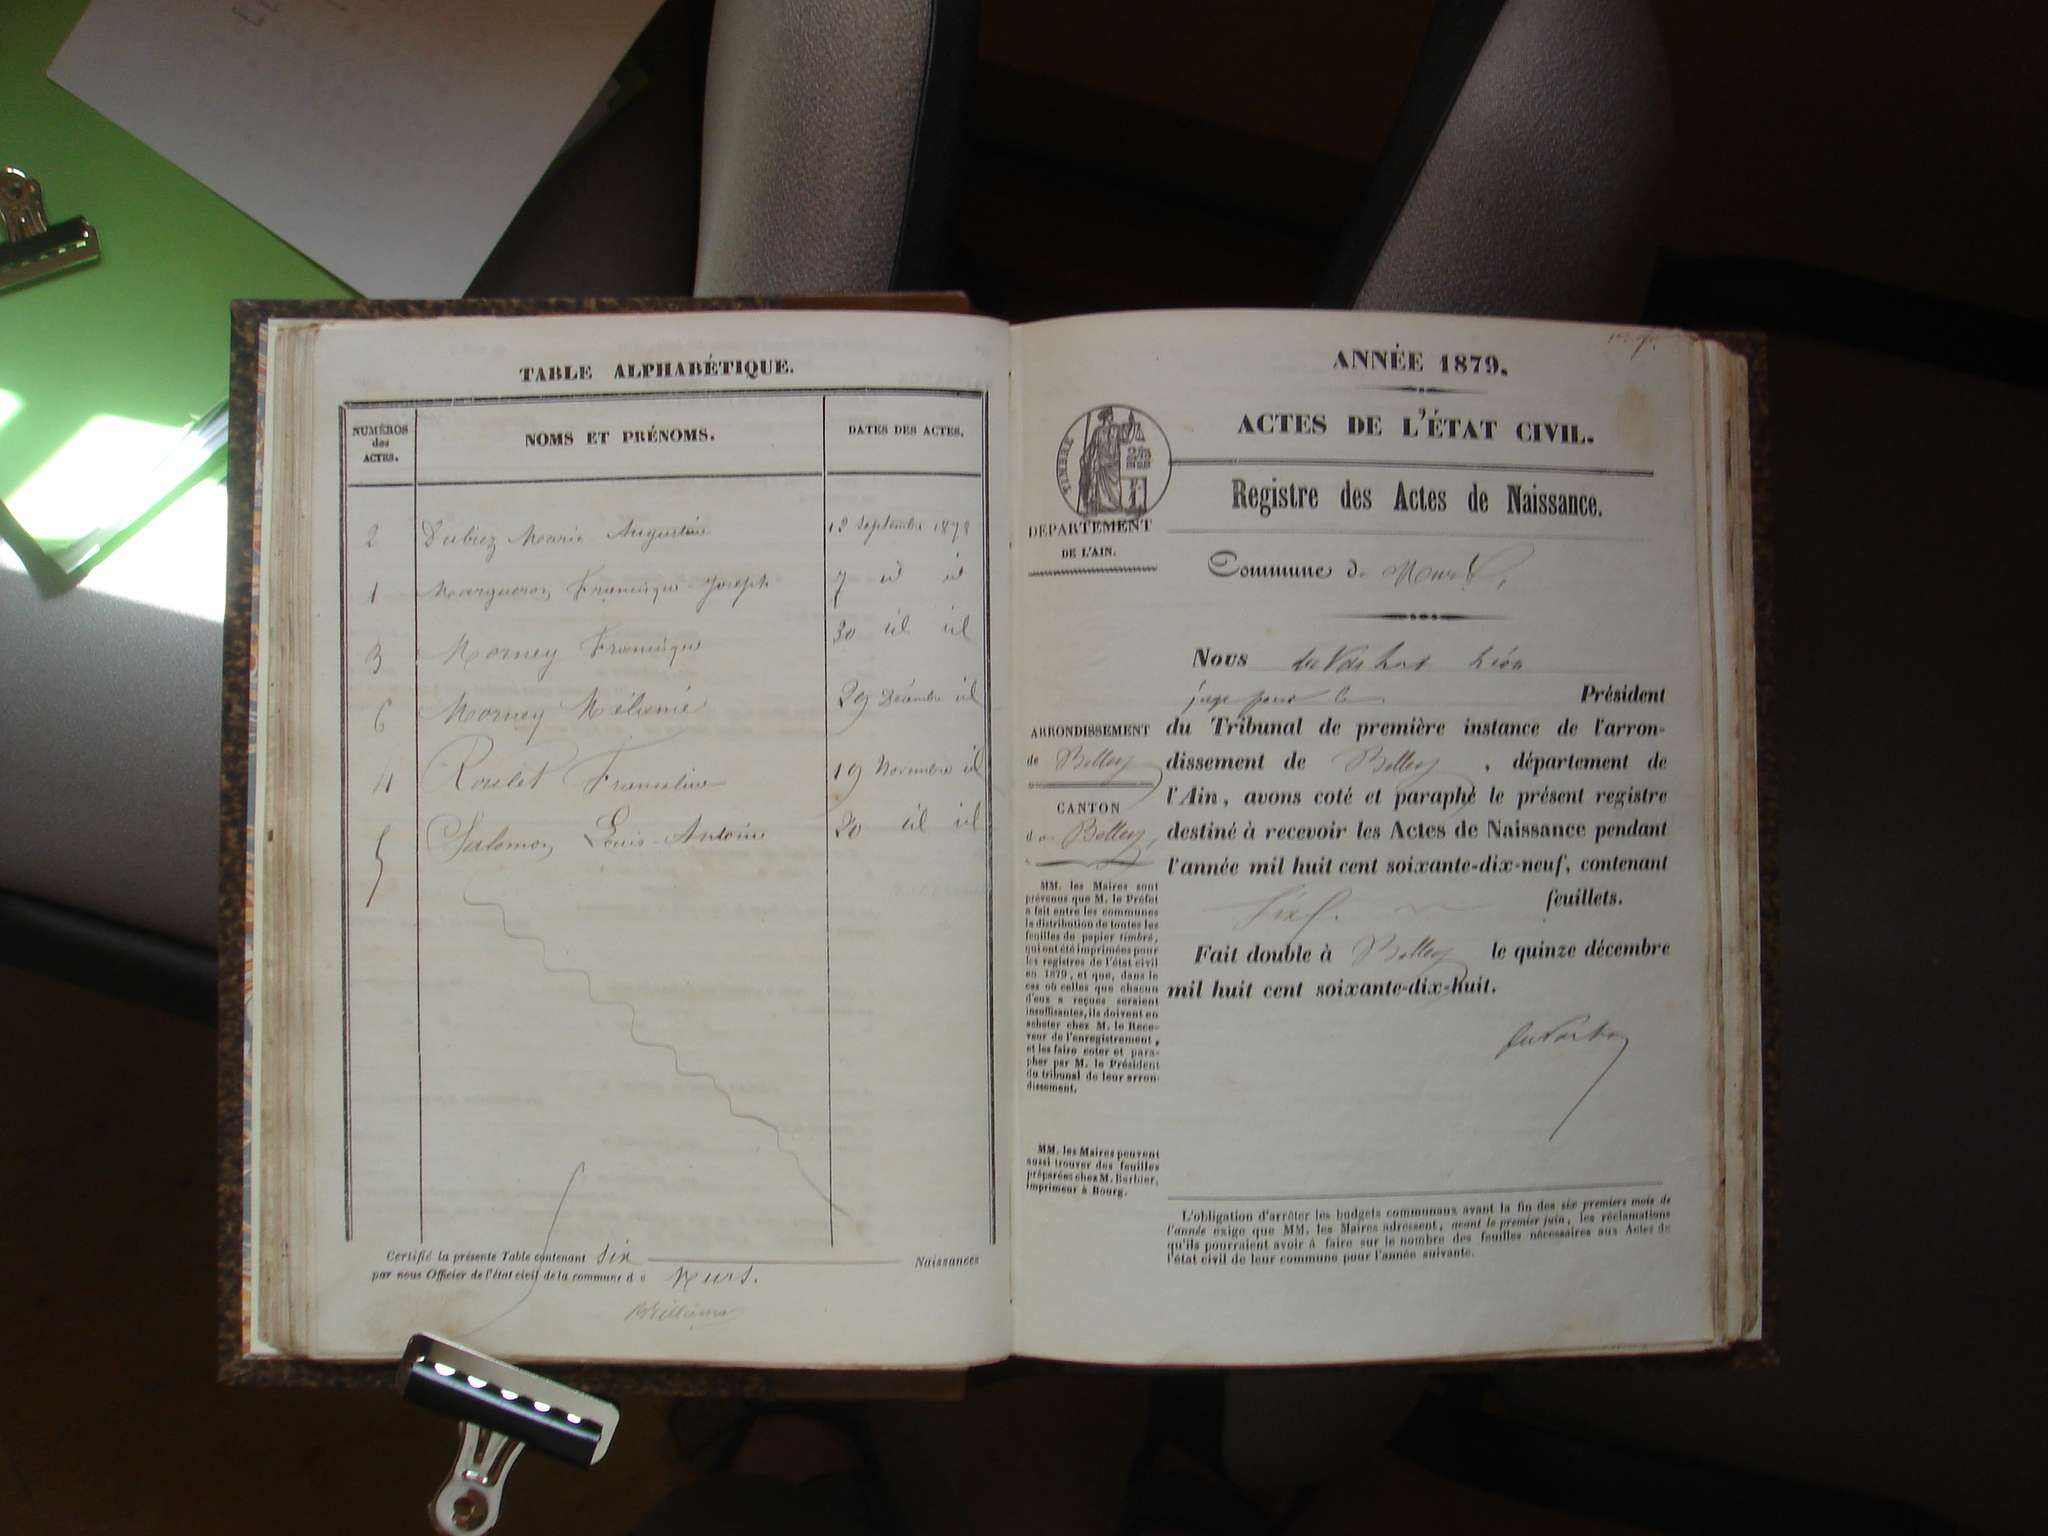 TABLE ALPHABÉTIQUE.
NUMÉROS des ACTES.
NOMS ET PRÉNOMS.
DATES DES ACTES.
2 Dubiez Marie Augustine 12 Septembre 1878
1 Margueron Francisque Joseph 7 id id
3 Morney Francisque 30 id id
6 Morney Mélanie 29 Décembre id
4 Roulet Franceline 19 Novembre id
5 Salomon Louis Antoine 20 id id
Certifié la présente Table contenant six Naissances
par nous Officier de l'état civil de la commune de Murs.
ANNÉE 1879.
ACTES DE L'ÉTAT CIVIL.
TIMBRE
Registre des Actes de Naissance.
DÉPARTEMENT
DE L'AIN.
Commune de Murs
Nous
juge pour le Président
du Tribunal de première instance de l'arron-
dissement de Belley, département de
l'Ain, avons coté et paraphé le présent registre
destiné à recevoir les Actes de Naissance pendant
l'année mil huit cent soixante-dix-neuf, contenant
six feuillets.
Fait double à Belley le quinze décembre
mil huit cent soixante-dix-huit.
ARRONDISSEMENT
de Belley
CANTON
de Belley,
MM. les Maires sont
prévenus que M. le Préfet
a fait entre les communes
la distribution de toutes les
feuilles de papier timbré,
qui ont été imprimées pour
les registres de l'état civil
en 1879, et que, dans le
cas où celles que chacun
d'eux a reçues seraient
insuffisantes, ils doivent en
acheter chez M. le Rece-
veur de l'enregistrement,
et les faire coter et para-
pher par M. le Président
du tribunal de leur arron-
dissement.
MM. les Maires peuvent
aussi trouver des feuilles
préparées chez M. Barbier,
imprimeur à Bourg.
L'obligation d'arrêter les budgets communaux avant la fin des six premiers mois de
l'année exige que MM. les Maires adressent, avant le premier juin, les réclamations
qu'ils pourraient avoir à faire sur le nombre des feuilles nécessaires aux Actes de
l'état civil de leur commune pour l'année suivante.